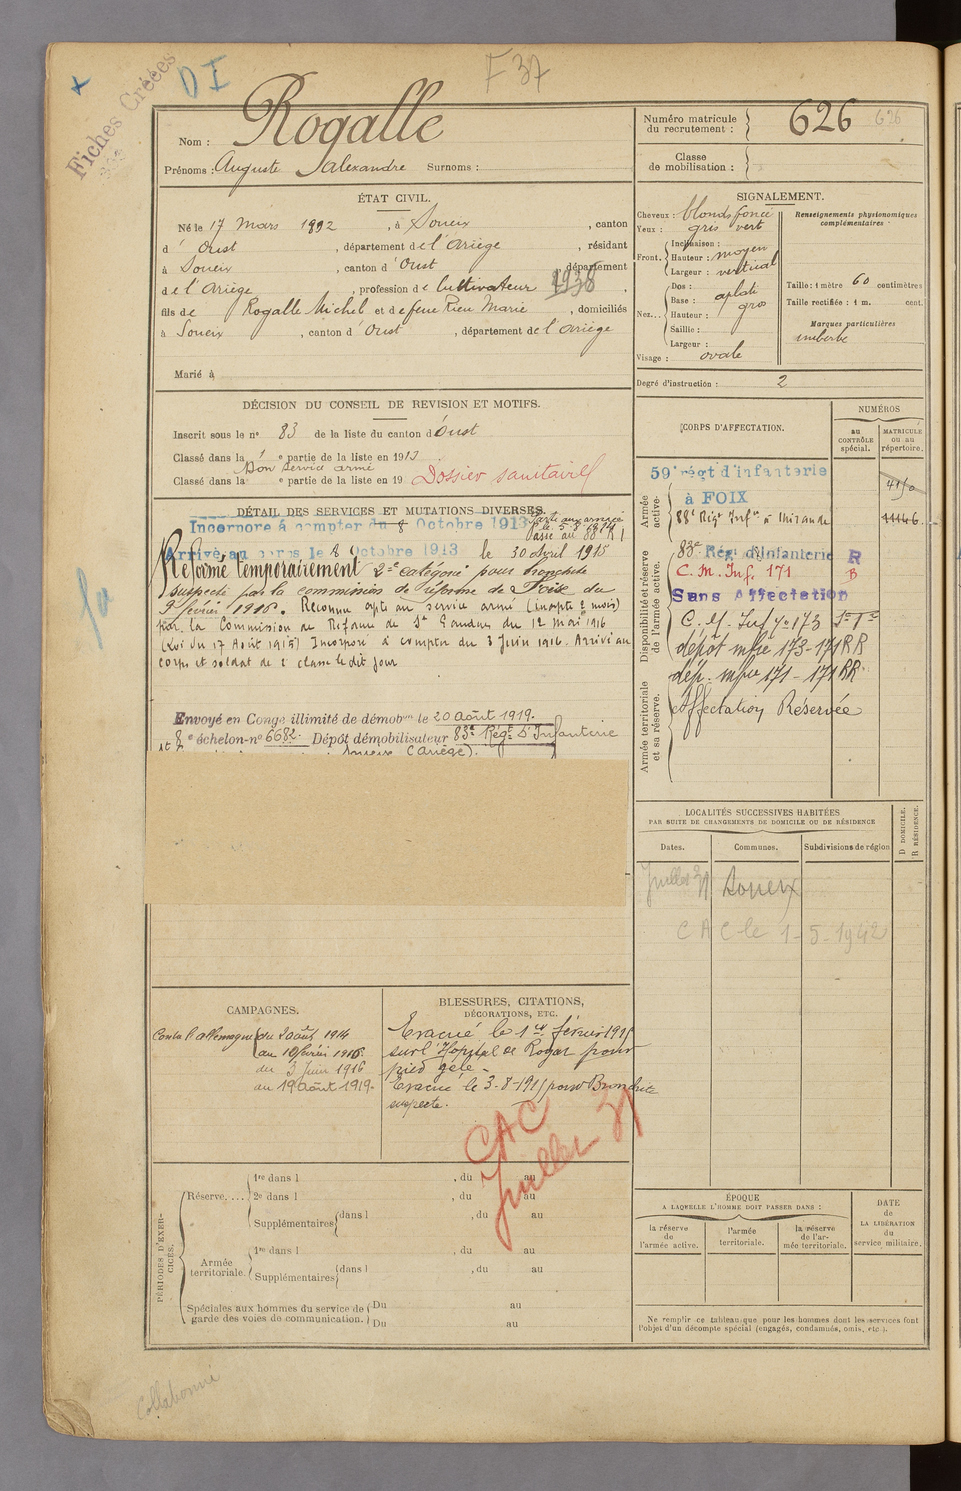 Fiches Créées
D I
F 37
Nom : Rogalle
Prénoms : Auguste Alexandre Surnoms :
Numéro matricule du recrutement : 626 626
Classe de mobilisation :
ÉTAT CIVIL.
Né le 17 Mars 1892, à Soueix, canton
d' Oust, département de l'Ariège, résidant
à Soueix, canton d'Oust, département
de l'Ariège, profession de cultivateur 1938
fils de Rogalle Michel et de feue Rieu Marie, domiciliés
à Soueix, canton d'Oust, département de l'Ariège
Marié à
SIGNALEMENT.
Cheveux : blonds foncé
Yeux : gris vert
Front. Inclinaison :
Hauteur : moyen
Largeur : vertical
Nez... Dos : aplati
Base :
Hauteur : gro
Saillie :
Largeur :
Visage : ovale
Renseignements physionomiques complémentaires :
Taille : 1 mètre 60 centimètres
Taille rectifiée : 1 m. cent.
Marques particulières
imberbe
Degré d'instruction : 2
DÉCISION DU CONSEIL DE REVISION ET MOTIFS.
Inscrit sous le n° 83 de la liste du canton d'Oust
Classé dans la 1e partie de la liste en 1913
Bon service armé
Classé dans la e partie de la liste en 19
Dossier sanitaire
DÉTAIL DES SERVICES ET MUTATIONS DIVERSES.
Incorporé à compter du 8 Octobre 1913
Parti aux armées
le 5-8-1914
Passé au 88e R I
Arrivé au corps le 8 Octobre 1913 le 30 Avril 1915
Réformé temporairement 2e catégorie pour bronchite
suspecte par la commission de réforme de Foix du
9 février 1916. Reconnu apte au service armé (inapte 2 mois)
par la Commission de Réforme de St Gaudens du 12 Mai 1916
(Loi du 17 Août 1915) Incorporé à compter du 3 Juin 1916. Arrivé au
corps et soldat de 2e classe le dit jour
Envoyé en Congé illimité de démobon le 20 août 1919.
8e échelon-n° 6682. Dépôt démobilisateur 83e Regt d'Infanterie
(Ariège)
CORPS D'AFFECTATION.
NUMÉROS
au CONTRÔLE spécial.
MATRICULE ou au répertoire.
Armée active.
59e régt d'infanterie
à FOIX
88e Regt Infie à Mirande
11146
Disponibilité et réserve de l'armée active.
83e Rég. d'Infanterie R
C. M. Inf. 171 B
Sans Affectation
C. M. Inf n° 173
dépôt mbre 173-171 RR
dép. mbre 171-171 RR
Armée territoriale et sa réserve.
Affectation Réservée
LOCALITÉS SUCCESSIVES HABITÉES
PAR SUITE DE CHANGEMENTS DE DOMICILE OU DE RÉSIDENCE
Dates.
Communes.
Subdivisions de région
D DOMICILE.
R RÉSIDENCE.
Juillet 31 Soueix
C A C le 1-5-1942
CAMPAGNES.
Contre l'allemagne du 2 août 1914
au 10 février 1916.
du 3 Juin 1916
au 19 août 1919.
BLESSURES, CITATIONS,
DÉCORATIONS, ETC.
Evacué le 1er février 1915
sur l'Hôpital de Royat pour
pied gelé.
Evacué le 3-8-1915 pour Bronchite
suspecte.
CAC
Juillet 31
PÉRIODES D'EXERCICES.
Réserve.... 1re dans l , du au
2e dans l , du au
Supplémentaires dans l , du au
Armée territoriale. 1re dans l , du au
Supplémentaires dans l , du au
Spéciales aux hommes du service de garde des voies de communication. Du au
Du au
ÉPOQUE
A LAQUELLE L'HOMME DOIT PASSER DANS :
la réserve de l'armée active.
l'armée territoriale.
la réserve de l'armée territoriale.
DATE de LA LIBÉRATION du service militaire.
Ne remplir ce tableau que pour les hommes dont les services font
l'objet d'un décompte spécial (engagés, condamnés, omis, etc.).